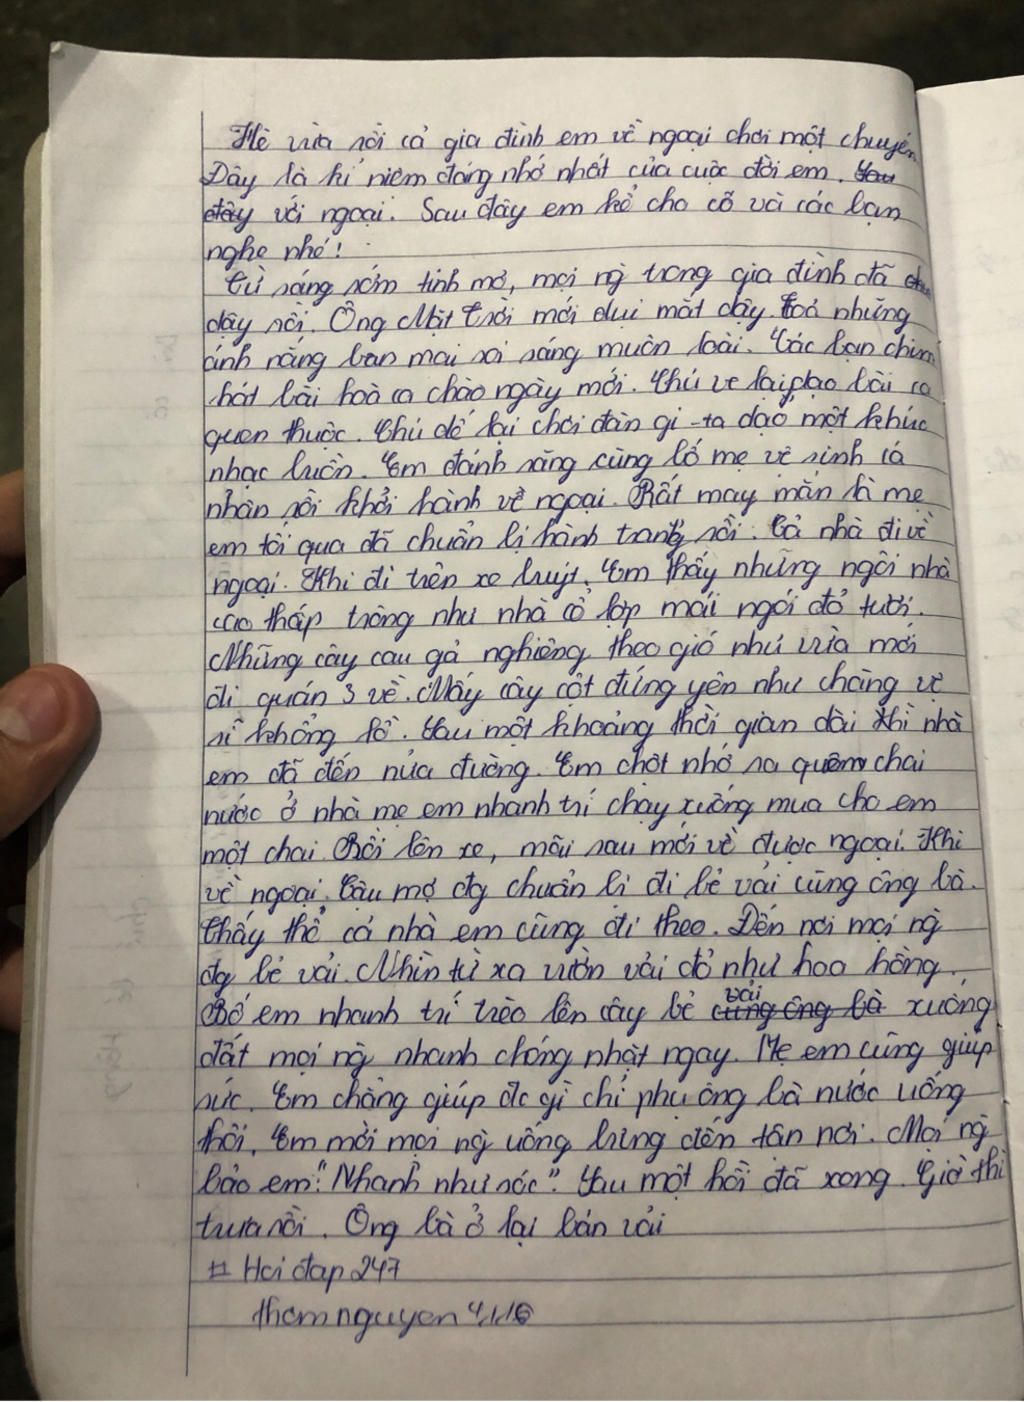 Hè vừa rồi cả gia đình em về ngoại chơi một chuyến
Đây là kỉ niệm đáng nhớ nhất của cuộc đời em. Sau
đây với ngoại. Sau đây em kể cho cô và các bạn
nghe nhé!
Từ sáng sớm tinh mơ, mọi ng̀ trong gia đình đã
dậy rồi. Ông Mặt Trời mới dụi mắt dậy toả những
ánh nắng ban mai soi sáng muôn loài. Các bạn chim
hát bài hoà ca chào ngày mới. Chú ve lại dạo bài ca
quen thuộc. Chú dế lại chơi đàn gi-ta dạo một khúc
nhạc buồn. Em đánh răng cùng bố mẹ vệ sinh cá
nhân rồi khởi hành về ngoại. Rất may mắn là mẹ
em tối qua đã chuẩn bị hành trang rồi. Cả nhà đi về
ngoại. Khi đi trên xe buýt, Em thấy những ngôi nhà
cao thấp trông như nhà cổ lợp mái ngói đỏ tươi.
Những cây cau gả nghiêng theo gió như vừa mới
đi quán 3 về. Mấy cây cột đứng yên như chàng vệ
sĩ khổng lồ. Sau một khoảng thời gian dài thì nhà
em đã đến nửa đường. Em chợt nhớ ra quên chai
nước ở nhà mẹ em nhanh trí chạy xuống mua cho em
một chai. Rồi lên xe, mãi sau mới về được ngoại. Khi
về ngoại, Cậu mợ đg chuẩn bị đi bẻ vải cùng ông bà.
Thấy thế cả nhà em cũng đi theo. Đến nơi mọi ng̀
đg bẻ vải. Nhìn từ xa vườn vải đỏ như hoa hồng.
Bố em nhanh trí trèo lên cây bẻ vải cùng ông bà xuống
đất mọi ng̀ nhanh chóng nhặt ngay. Mẹ em cũng giúp
sức. Em chẳng giúp đc gì chỉ phụ ông bà nước uống
thôi, Em mời mọi ng̀ uống bưng đến tận nơi. Mọi ng̀
bảo em: "Nhanh như sóc". Sau một hồi đã xong. Giờ thì
trưa rồi. Ông bà ở lại bán vải
# Hoi đap 247
thomnguyen41116